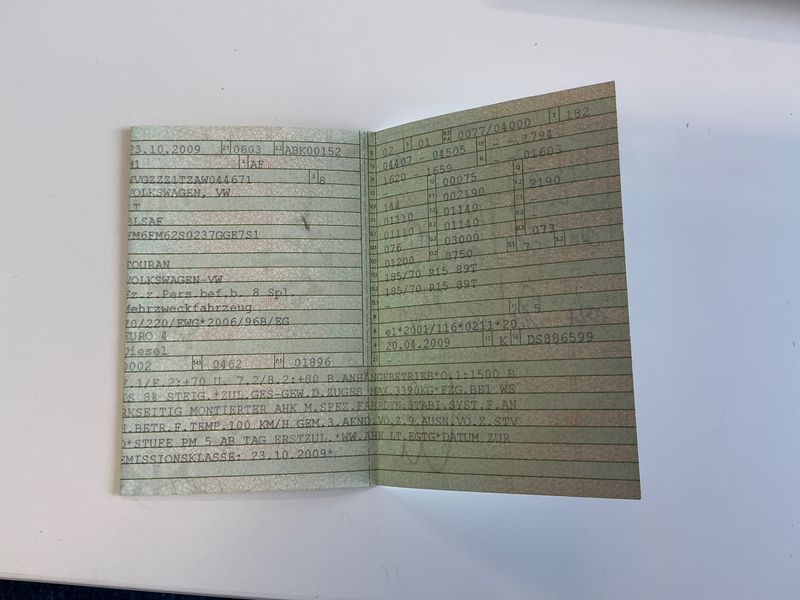 23.10.2009 0603 ABK00152
M1 AF
WVGZZZ1TZAW044671 8
VOLKSWAGEN, VW
1T
BLSAF
FM6FM62S0237GGE7S1
TOURAN
VOLKSWAGEN-VW
Fz.z.Pers.bef.b. 8 Spl.
Mehrzweckfahrzeug
70/220/EWG*2006/96B/EG
EURO 4
Diesel
0002 0462 01896
02 01 0077/04000 182
04407 - 04505 - - 1794
1620 - 1659 - 01603
00075
144 002190 2190
01110 01140
01110 01140
076 03000 073
01200 0750 7
185/70 R15 89T
185/70 R15 89T
5
e1*2001/116*0211*20
20.04.2009 K DS886599
Z.1/F.2:+70 U. 7.2/8.2:+80 B.ANHÄNGEBETRIEB*O.1:1500 B.
IS 8% STEIG.*ZUL.GES-GEW.D.ZUGES MAX.3390KG*FZG.BEI WE
RKSEITIG MONTIERTER AHK M.SPEZ.FAHRDYN.STABI.SYST.F.AN
H.BETR.F.TEMP.100 KM/H GEM.3.AEND.VO.Z.9.AUSN.VO.Z.STV
O*STUFE PM 5 AB TAG ERSTZUL.*WW.AHK LT.EGTG*DATUM ZUR
EMISSIONSKLASSE: 23.10.2009*